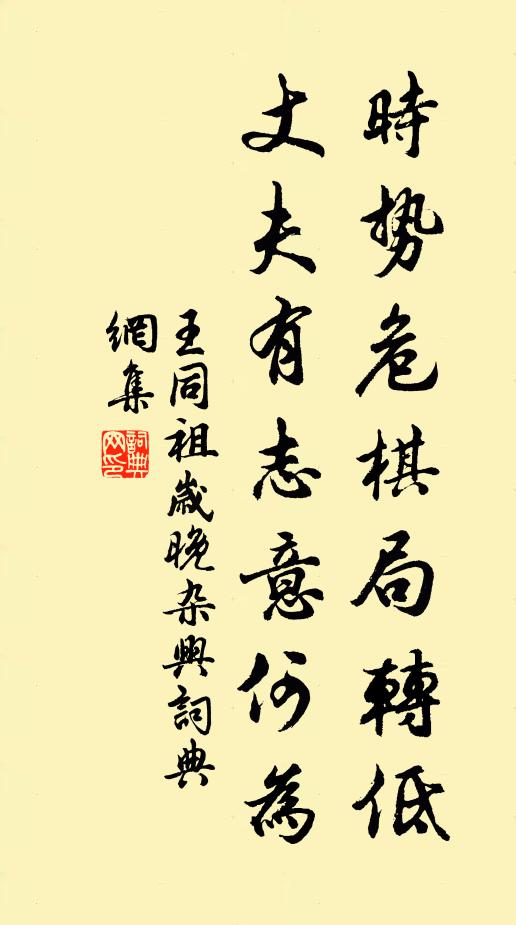 時势危棋局轉低
丈夫有志意何為
王同祖歲晚杂興詞典
網集
詞典
网印